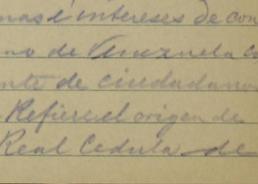 mas é intereses de con
no de Venezuela co
nte de ciudadanos
Refiere el origen de
Real Cedula de